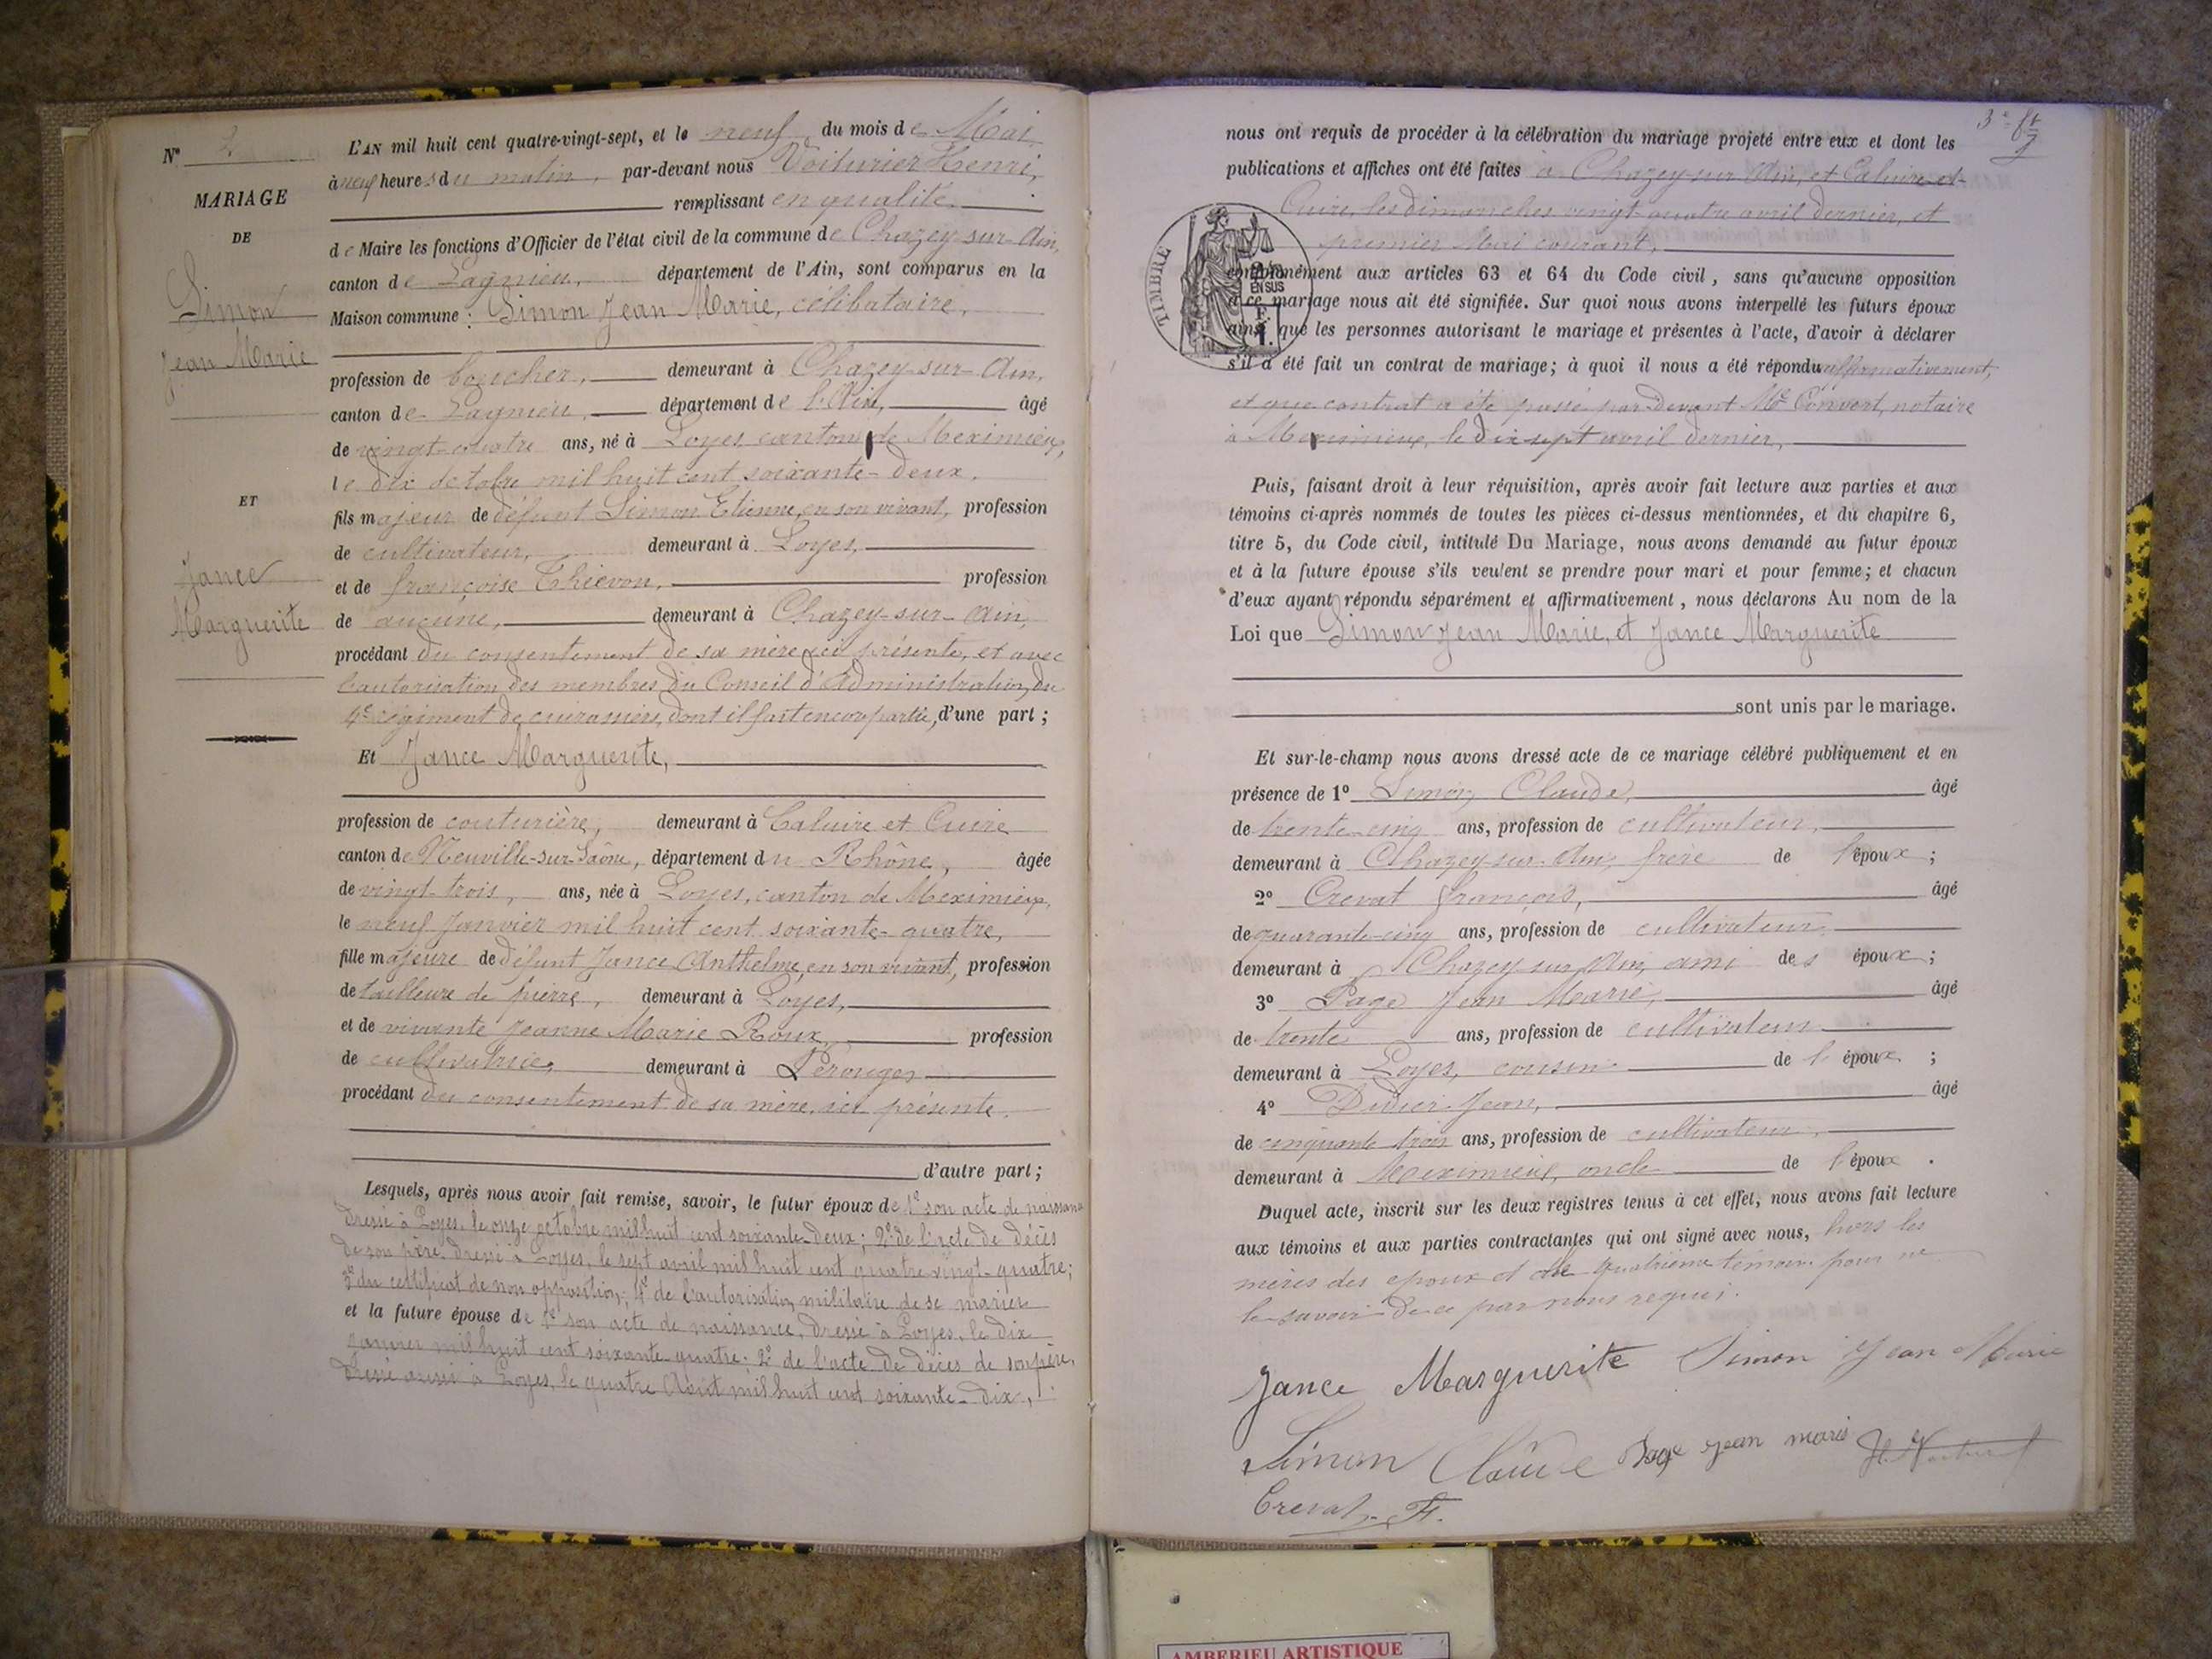 N° 2
MARIAGE
DE
Simon
Jean Marie
ET
Jance
Marguerite
L'AN mil huit cent quatre-vingt-sept, et le neuf du mois de Mai
à neuf heures du matin, par-devant nous Voiturier Henri,
remplissant en qualité
de Maire les fonctions d'Officier de l'état civil de la commune de Chazey-sur-Ain,
canton de Lagnieu, département de l'Ain, sont comparus en la
Maison commune : Simon Jean Marie, célibataire,
profession de boucher, demeurant à Chazey-sur-Ain,
canton de Lagnieu, département de l'Ain, âgé
de vingt-quatre ans, né à Loyes, canton de Meximieux,
le dix octobre mil huit cent soixante-deux,
fils majeur de défunt Simon Etienne, en son vivant, profession
de cultivateur, demeurant à Loyes,
et de françoise Thievon, profession
de aucune, demeurant à Chazey-sur-Ain,
procédant du consentement de sa mère ici présente, et avec
l'autorisation des membres du Conseil d'Administration du
4e régiment de cuirassiers, dont il fait encore partie, d'une part ;
Et Jance Marguerite,
profession de couturière, demeurant à Caluire et Cuire
canton de Neuville-sur-Saône, département du Rhône, âgée
de vingt-trois, ans, née à Loyes, canton de Meximieux,
le neuf Janvier mil huit cent soixante-quatre,
fille majeure de défunt Jance Anthelme, en son vivant, profession
de tailleure de pierre, demeurant à Loyes,
et de vivante Jeanne Marie Roux, profession
de cultivatrice, demeurant à Pérouges
procédant du consentement de sa mère, ici présente,
d'autre part ;
Lesquels, après nous avoir fait remise, savoir, le futur époux de 1° son acte de naissance
dressé à Loyes, le onze octobre mil huit cent soixante-deux ; 2° de l'acte de décès
de son père dressé à Loyes, le sept avril mil huit cent quatre vingt-quatre ;
3° du certificat de non opposition ; 4° de l'autorisation militaire de se marier
et la future épouse de 1° son acte de naissance, dressé à Loyes, le dix
janvier mil huit cent soixante-quatre ; 2° de l'acte de décès de son père,
dressé aussi à Loyes, le quatre Août mil huit cent soixante-dix,
nous ont requis de procéder à la célébration du mariage projeté entre eux et dont les
publications et affiches ont été faites à Chazey-sur-Ain, et Caluire et
Cuire, les dimanches vingt-quatre avril dernier, et
premier Mai courant,
TIMBRE
EN SUS
conformément aux articles 63 et 64 du Code civil, sans qu'aucune opposition
à ce mariage nous ait été signifiée. Sur quoi nous avons interpellé les futurs époux
ainsi que les personnes autorisant le mariage et présentes à l'acte, d'avoir à déclarer
s'il a été fait un contrat de mariage ; à quoi il nous a été répondu affirmativement,
et que contrat a été passé par-devant Me Convert, notaire
à Meximieux, le dix sept avril dernier,
Puis, faisant droit à leur réquisition, après avoir fait lecture aux parties et aux
témoins ci-après nommés de toutes les pièces ci-dessus mentionnées, et du chapitre 6,
titre 5, du Code civil, intitulé Du Mariage, nous avons demandé au futur époux
et à la future épouse s'ils veulent se prendre pour mari et pour femme ; et chacun
d'eux ayant répondu séparément et affirmativement, nous déclarons Au nom de la
Loi que Simon Jean Marie, et Jance Marguerite
sont unis par le mariage.
Et sur-le-champ nous avons dressé acte de ce mariage célébré publiquement et en
présence de 1° Simon Claude, âgé
de trente-cinq ans, profession de cultivateur,
demeurant à Chazey-sur-Ain, frère de l'époux ;
2° Crevat françois, âgé
de quarante-cinq ans, profession de cultivateur
demeurant à Chazey sur Ain, ami des époux ;
3° Page Jean Marie, âgé
de trente ans, profession de cultivateur
demeurant à Loyes, cousin de l'époux ;
4° Didier Jean, âgé
de cinquante trois ans, profession de cultivateur,
demeurant à Meximieux, oncle de l'époux .
Duquel acte, inscrit sur les deux registres tenus à cet effet, nous avons fait lecture
aux témoins et aux parties contractantes qui ont signé avec nous, hors les
mères des époux et le quatrième témoin pour ne
le savoir de ce par nous requis.
Jance Marguerite Simon Jean Marie
Simon Claude Page jean marie
Crevat F.
AMBERIEU ARTISTIQUE